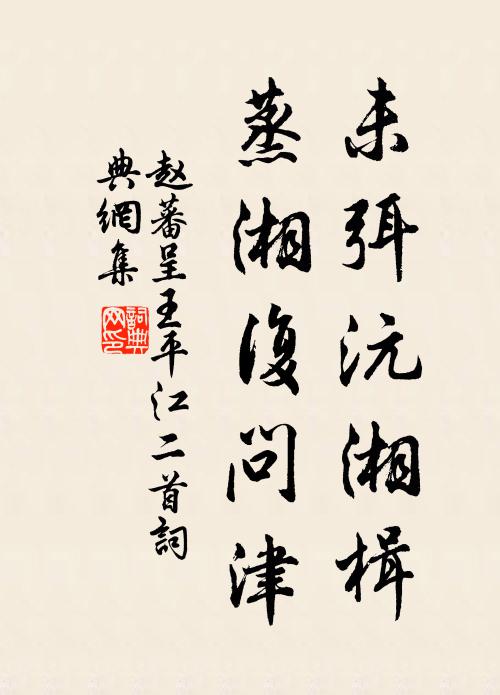 未弭沅湘楫
蒸湘復问津
赵蕃呈王平江二首詞
典網集
詞典网印